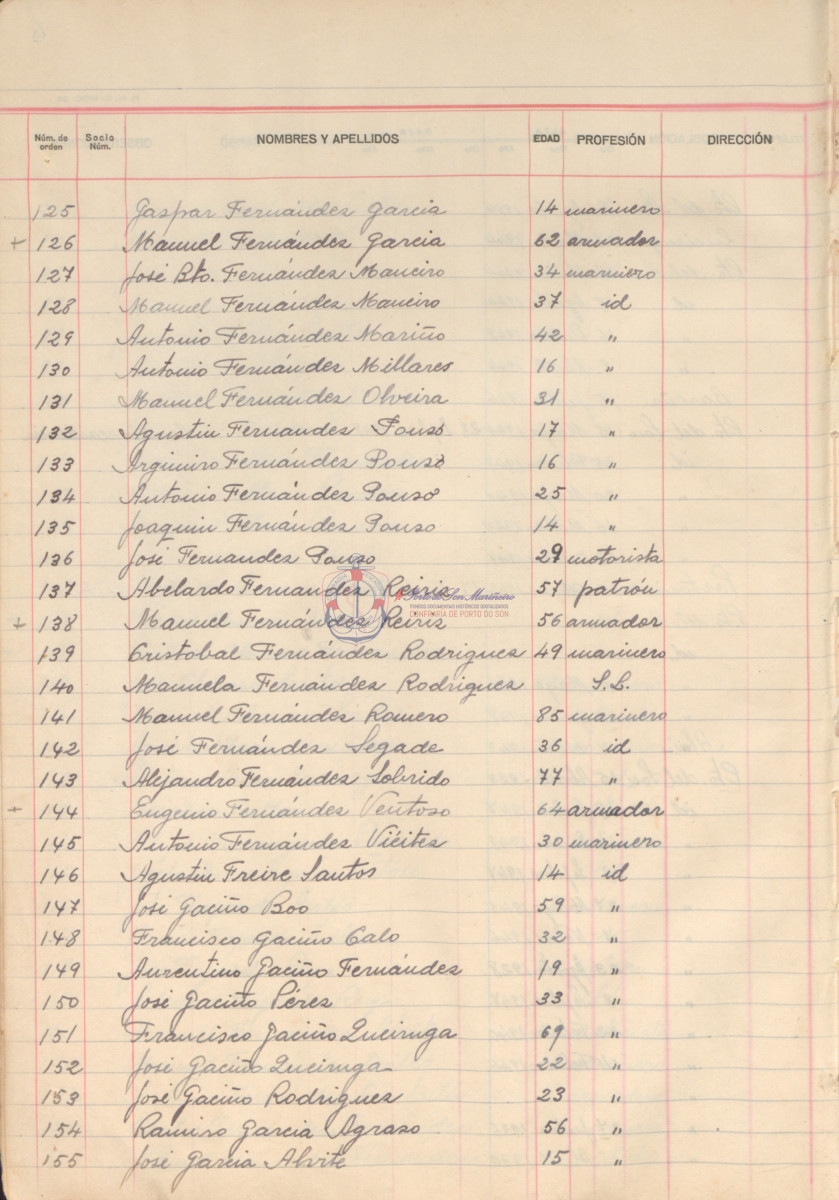 Núm. de orden Socio Núm. NOMBRES Y APELLIDOS EDAD PROFESIÓN DIRECCIÓN
125 Gaspar Fernández Garcia 14 marinero
+ 126 Manuel Fernández Garcia 62 armador
127 José Bto. Fernández Maneiro 34 marinero
128 Manuel Fernández Maneiro 37 id
129 Antonio Fernández Mariño 42 "
130 Antonio Fernández Millares 16 "
131 Manuel Fernández Olveira 31 "
132 Agustin Fernandez Pouso 17 "
133 Argimiro Fernández Pouso 16 "
134 Antonio Fernández Pouso 25 "
135 Joaquin Fernández Pouso 14 "
136 José Fernandez Pouso 29 motorista
137 Abelardo Fernandez Reiriz 57 patrón
+ 138 Manuel Fernández Reiriz 56 armador
139 Cristobal Fernández Rodriguez 49 marinero
140 Manuela Fernández Rodriguez S.L.
141 Manuel Fernández Romero 85 marinero
142 José Fernández Segade 36 id
143 Alejandro Fernández Sobrido 77 "
+ 144 Eugenio Fernández Ventoso 64 armador
145 Antonio Fernández Viéitez 30 marinero
146 Agustin Freire Santos 14 id
147 José Gaciño Boo 59 "
148 Francisco Gaciño Calo 32 "
149 Aurentino Gaciño Fernández 19 "
150 José Gaciño Pérez 33 "
151 Francisco Gaciño Queiruga 69 "
152 José Gaciño Queiruga 22 "
153 José Gaciño Rodriguez 23 "
154 Ramiro Garcia Agraso 56 "
155 José Garcia Alvite 15 "
Porto do Son Mariñeiro
FONDOS DOCUMENTAIS HISTÓRICOS DIXITALIZADOS
CONFRARÍA DE PORTO DO SON